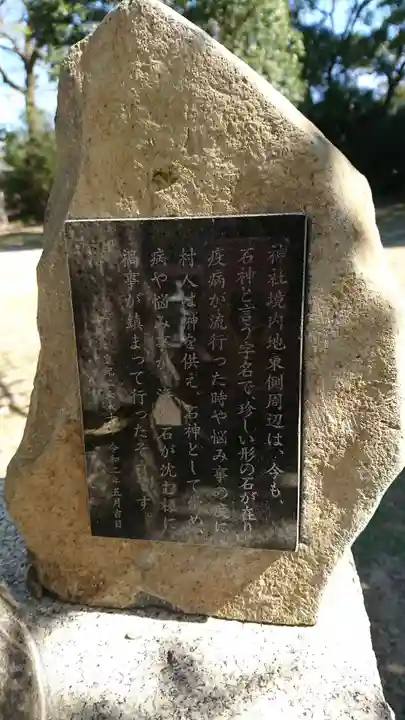 神社境内地東側周辺は、今も、
石神と言う字名で、珍しい形の石が在り
疫病が流行った時や悩み事の度に
村人は榊を供え、石神として崇め、
病や悩み事が 石が沈む様に
禍事が鎮まって行ったそうです。
令和二年五月吉日